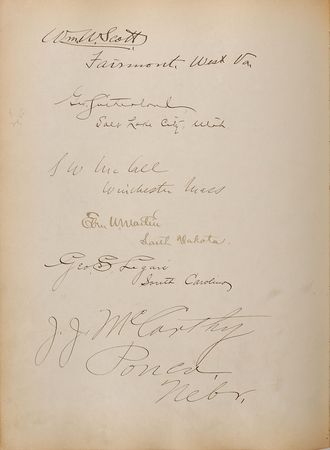 Wm W. Scott
Fairmont, West Va.
Geo Sutherland
Salt Lake City, Utah.
S W McCall
Winchester Mass
Eben W Martin
South Dakota.
Geo. S. Legare
South Carolina
J. J. McCarthy
Ponca,
Nebr.